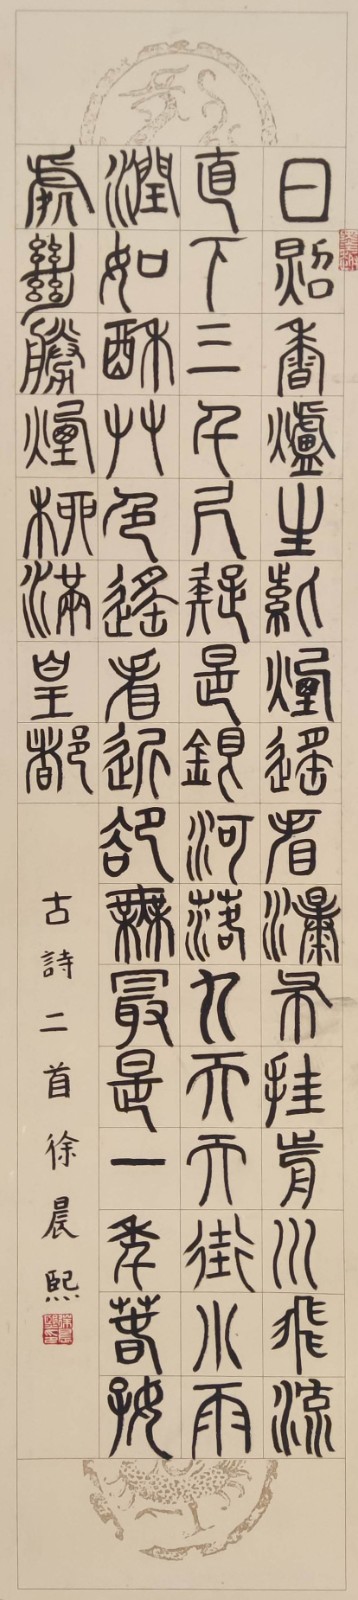 日照香爐生紫煙遙看瀑布挂前川飛流
直下三千尺疑是銀河落九天天街小雨
潤如酥艸色遙看近卻無最是一年春好
處絕勝煙柳滿皇都
古詩二首徐晨熙